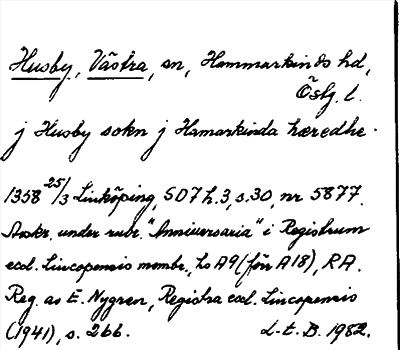 Husby, Västra, sn, Hammarkinds hd,
Östg. l.
j Husby sokn j Hamarkinda hæredhe.
1358 25/3 Linköping, SD7 h.3, s.30, nr 5877.
Avskr. under rubr. "Anniversaria" i Registrum
eccl. Lincopensis membr., hs A9 (förr A18), RA.
Reg. av E. Nygren, Registra eccl. Lincopensis
(1941), s. 266. L-t. B. 1982.